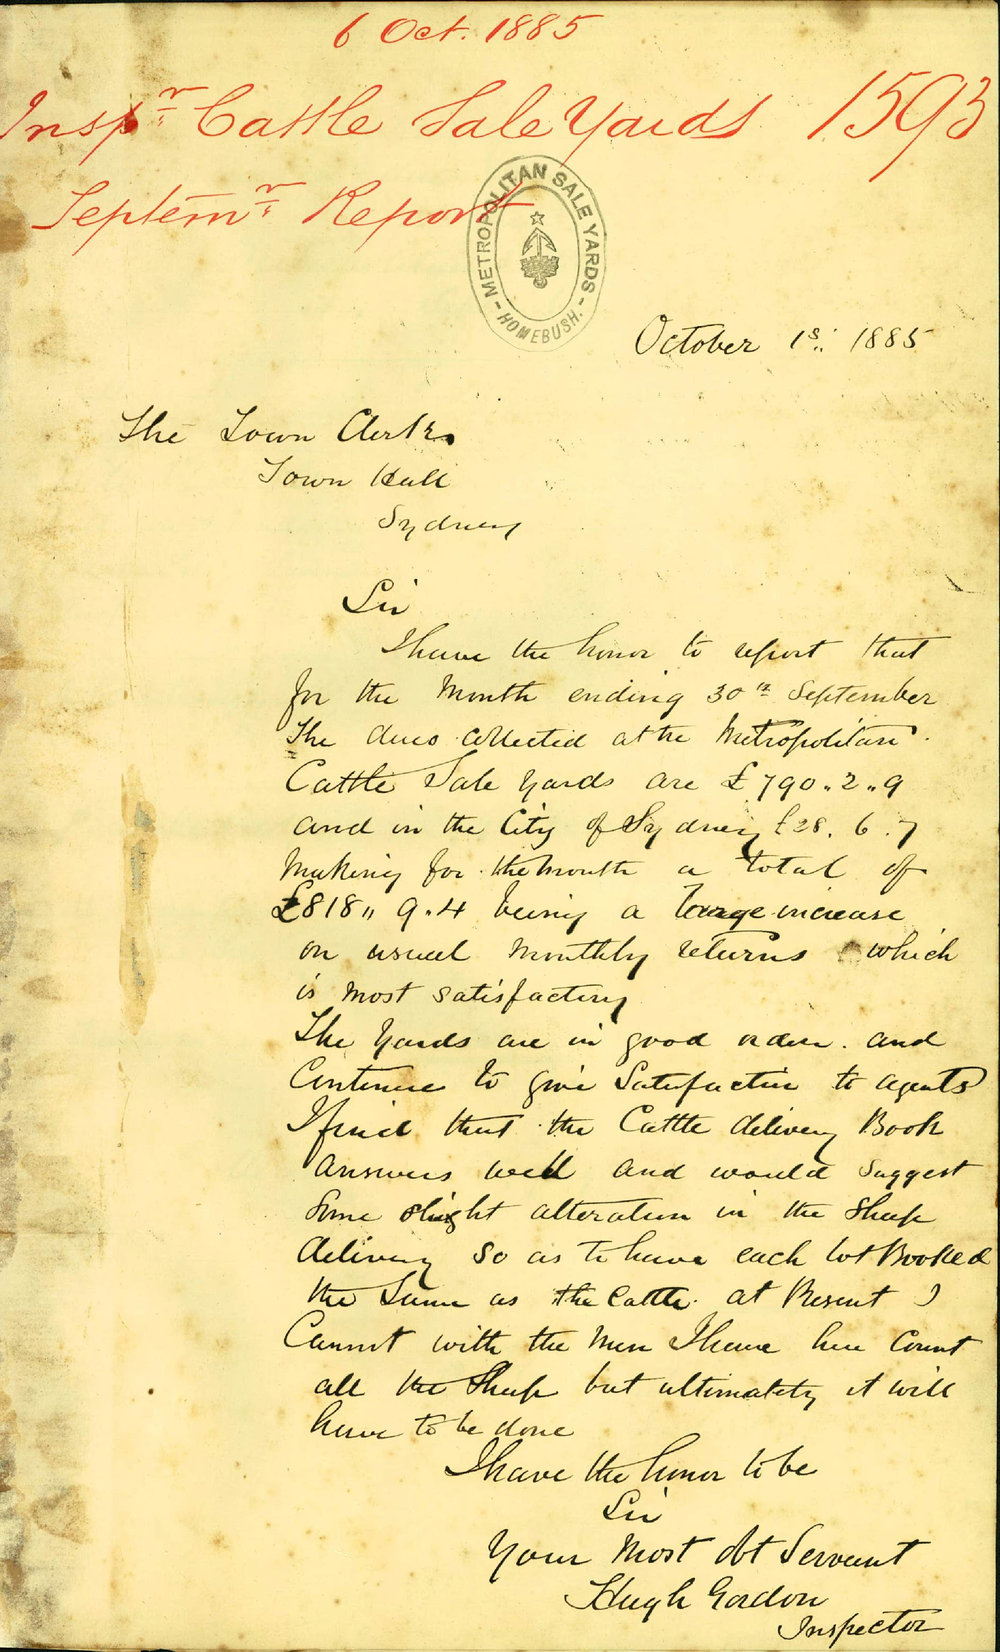 6 Oct. 1885
Inspr Cattle Sale Yards 1593
Septemr Report
METROPOLITAN SALE YARDS - HOMEBUSH. -
October 1st. 1885
The Town Clerk
Town Hall
Sydney
Sir
I have the honor to report that
for the Month ending 30th September
The dues collected at the Metropolitan
Cattle Sale Yards are £790.2.9
and in the City of Sydney £28.6.7
Making for the month a total of
£818" 9.4 being a large increase
on usual Monthly returns which
is most satisfactory
The Yards are in good order. and
Continue to give Satisfaction to agents
I find that the Cattle delivery Book
answers well and would suggest
some slight alteration in the Sheep
delivery so as to have each lot Booked
the Same as the Cattle. at Present I
Cannot with the Men I have here Count
all the Sheep but ultimately it will
have to be done
I have the honor to be
Sir
Your Most obt Servant
Hugh Gordon
Inspector